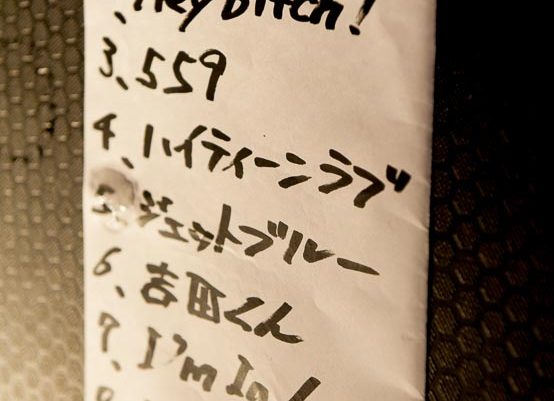 Hey Bitch!
3、559
4、ハイティーンラブ
5、ジェットブルー
6、吉田くん
7、I'm In
8、